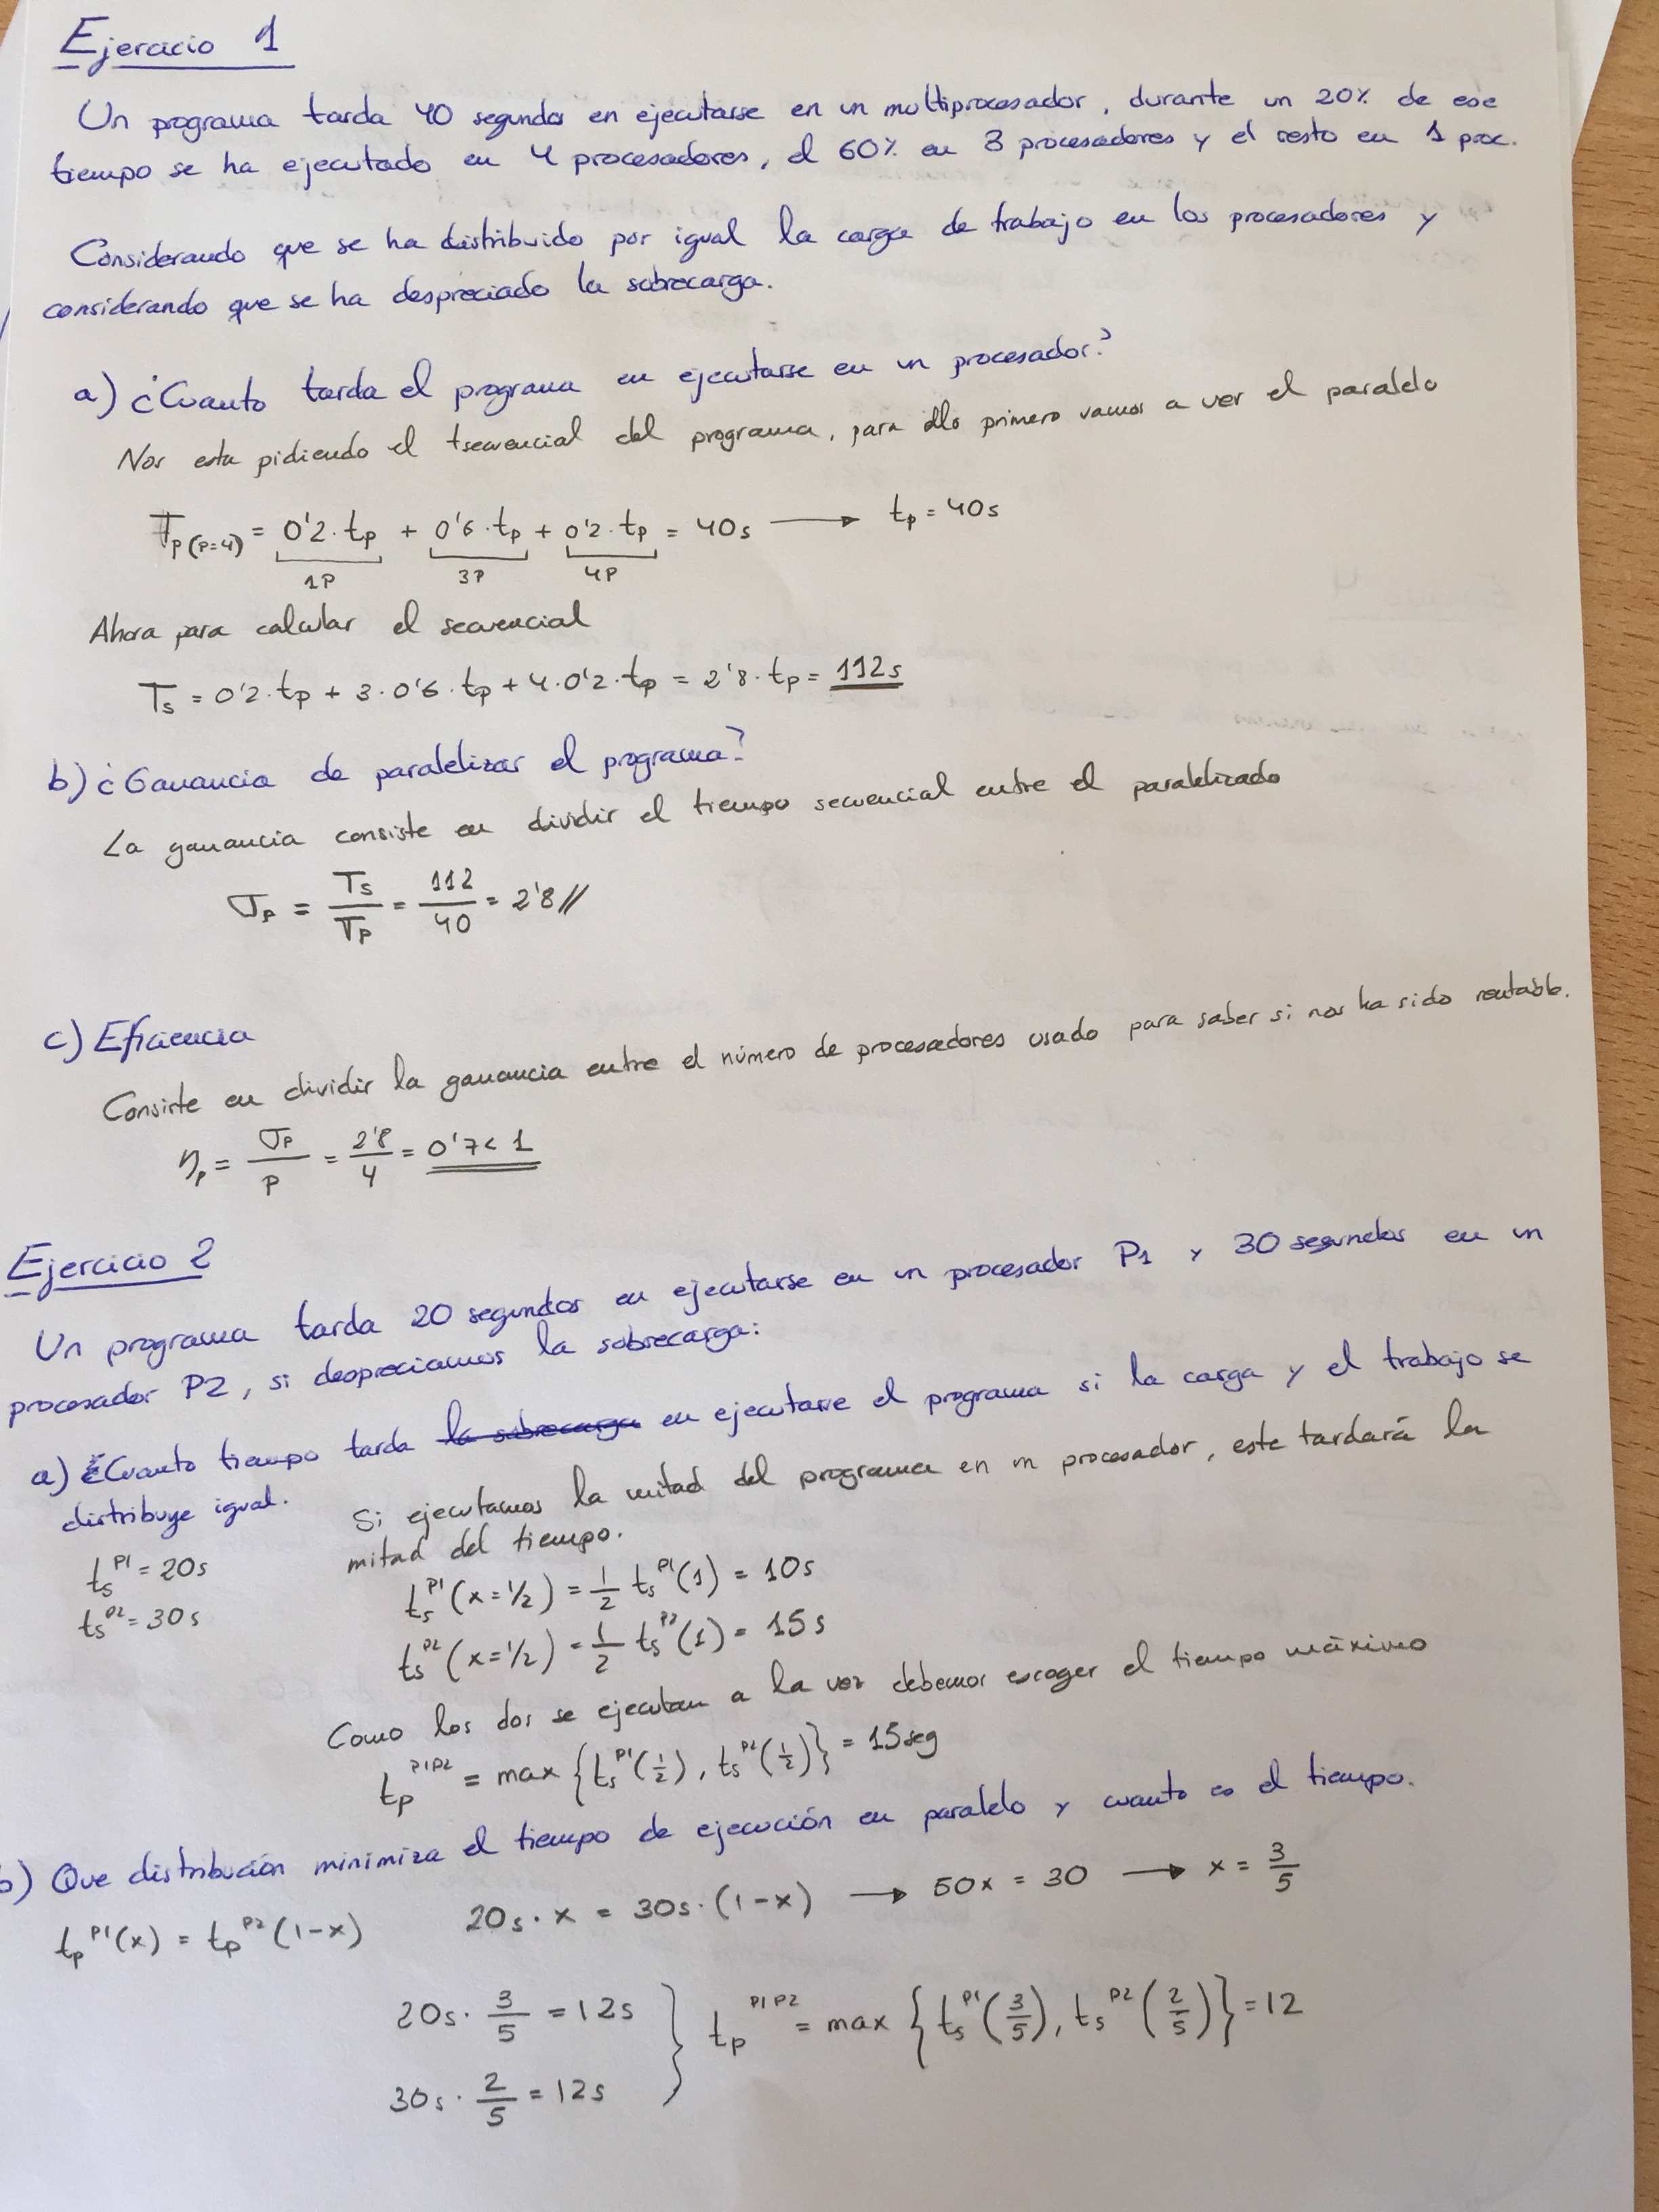 Ejercicio 1
Un programa tarda 40 segundos en ejecutarse en un multiprocesador, durante un 20% de ese
tiempo se ha ejecutado en 4 procesadores, el 60% en 3 procesadores y el resto en 1 proc.
Considerando que se ha distribuido por igual la carga de trabajo en los procesadores y
considerando que se ha despreciado la sobrecarga.
a) ¿Cuanto tarda el programa en ejecutarse en un procesador?
Nos esta pidiendo el tsecuencial del programa, para ello primero vamos a ver el paralelo
Tp(P=4) = 0'2·tp + 0'6·tp + 0'2·tp = 40s → tp = 40s
1P 3P 4P
Ahora para calcular el secuencial
Ts = 0'2·tp + 3·0'6·tp + 4·0'2·tp = 2'8·tp = 112s
b) ¿Ganancia de paralelizar el programa?
La ganancia consiste en dividir el tiempo secuencial entre el paralelizado
σp = Ts/Tp = 112/40 = 2'8//
c) Eficiencia
Consiste en dividir la ganancia entre el número de procesadores usado para saber si nos ha sido rentable.
ηp = σp/p = 2'8/4 = 0'7 < 1
Ejercicio 2
Un programa tarda 20 segundos en ejecutarse en un procesador P1 y 30 segundos en un
procesador P2, si despreciamos la sobrecarga:
a) ¿Cuanto tiempo tarda la sobrecarga en ejecutarse el programa si la carga y el trabajo se
distribuye igual.
Si ejecutamos la mitad del programa en un procesador, este tardará la
mitad del tiempo.
ts^P1 = 20s
ts^P2 = 30s
ts^P1 (x=1/2) = 1/2 ts^P1(1) = 10s
ts^P2 (x=1/2) = 1/2 ts^P2(1) = 15s
Como los dos se ejecutan a la vez debemos escoger el tiempo máximo
tp^P1P2 = max {ts^P1(1/2), ts^P2(1/2)} = 15seg
b) Que distribución minimiza el tiempo de ejecución en paralelo y cuanto es el tiempo.
tp^P1(x) = tp^P2(1-x) 20s·x = 30s·(1-x) → 50x = 30 → x = 3/5
20s·3/5 = 12s
30s·2/5 = 12s
tp^P1P2 = max {ts^P1(3/5), ts^P2(2/5)} = 12